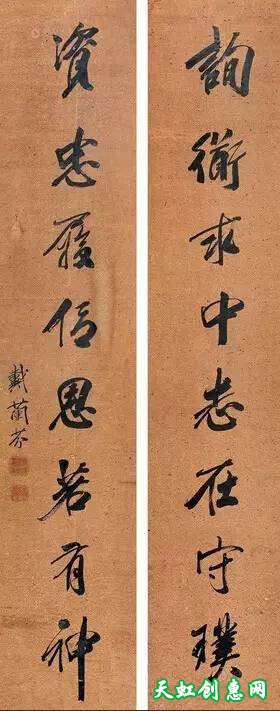 詢衡求中志在守璞
資忠履信思若有神
戴蘭芬
天虹创惠网